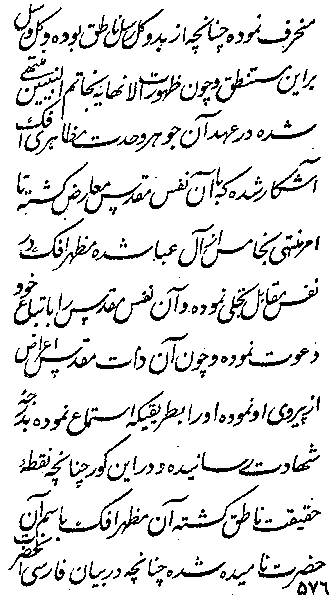 منحرف نموده چنانچه از بدو کل رسل ناطق بوده و کل رسل
بر این مستنطق و چون ظهورات الانهایه بخاتم النبیین منتهی
شده در عهد آن جوهر وحدت مظاهری افک
آشکار شده که با آن نفس مقدس معارض گشته تا
امر منتهی بخامس از آل عبا شده مظهر افک در
نفس مقابل تجلی نموده و آن نفس مقدس را باتباع خود
دعوت نموده و چون آن ذات مقدس اعراض
از پیروی او نموده او را بطریقیکه استماع نموده بدرجهٔ
شهادت رسانیده و در این کور چنانچه نقطهٔ
حقیقت ناطق گشته آن مظهر افک باسم آن
حضرت نامیده شده چنانچه در بیان فارسی
۵۷۶